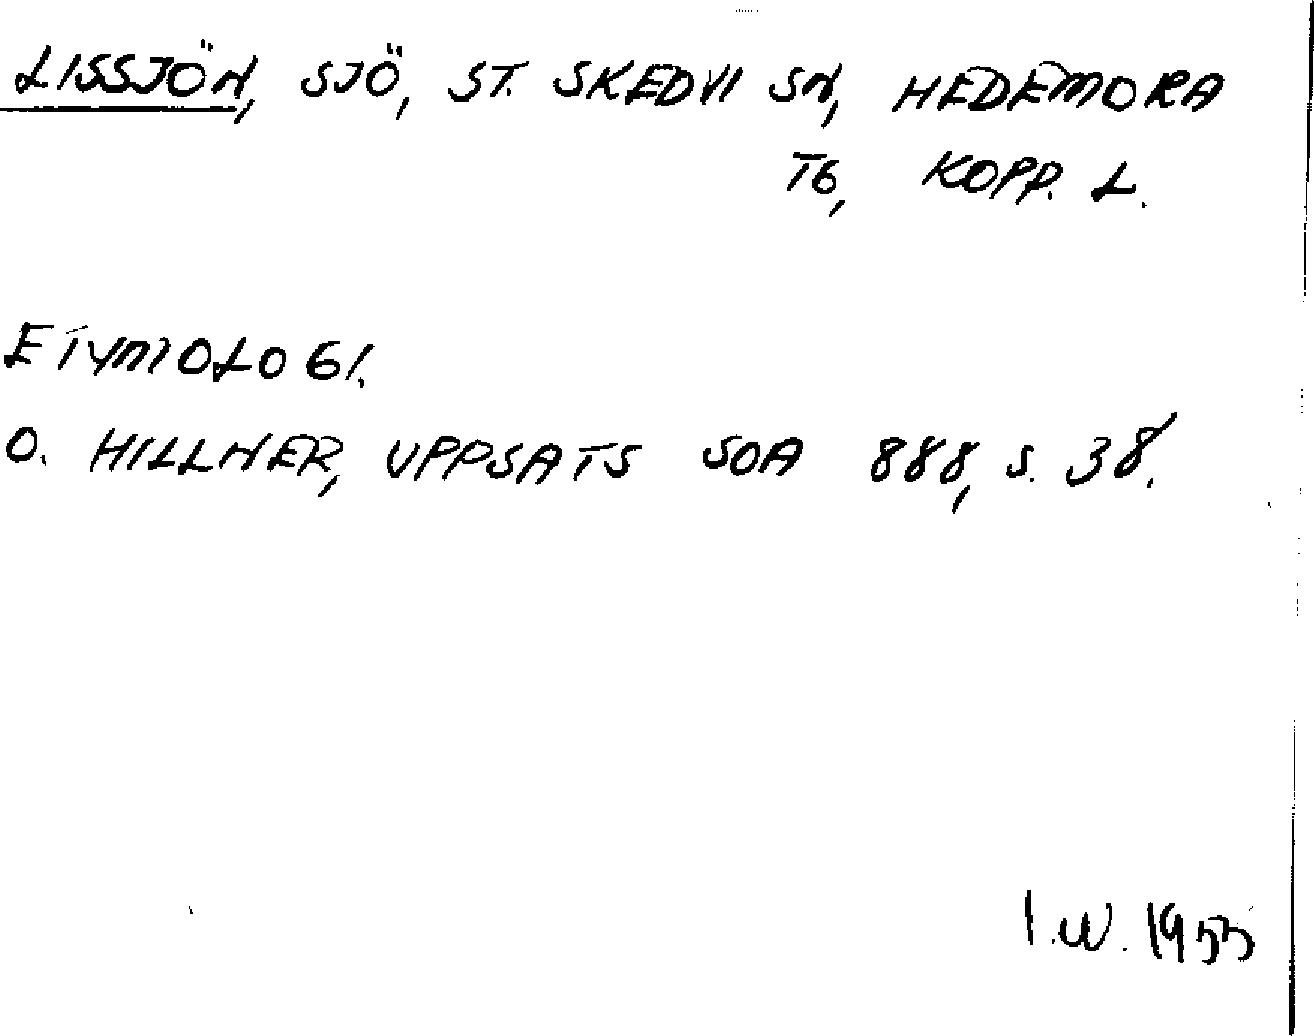 LISSJÖN, SJÖ, ST. SKEDVI SN, HEDEMORA
TG, KOPP. L.
ETYMOLOGI.
O. HILLNER, UPPSATS SOA 888, S. 38.
I.W. 1955